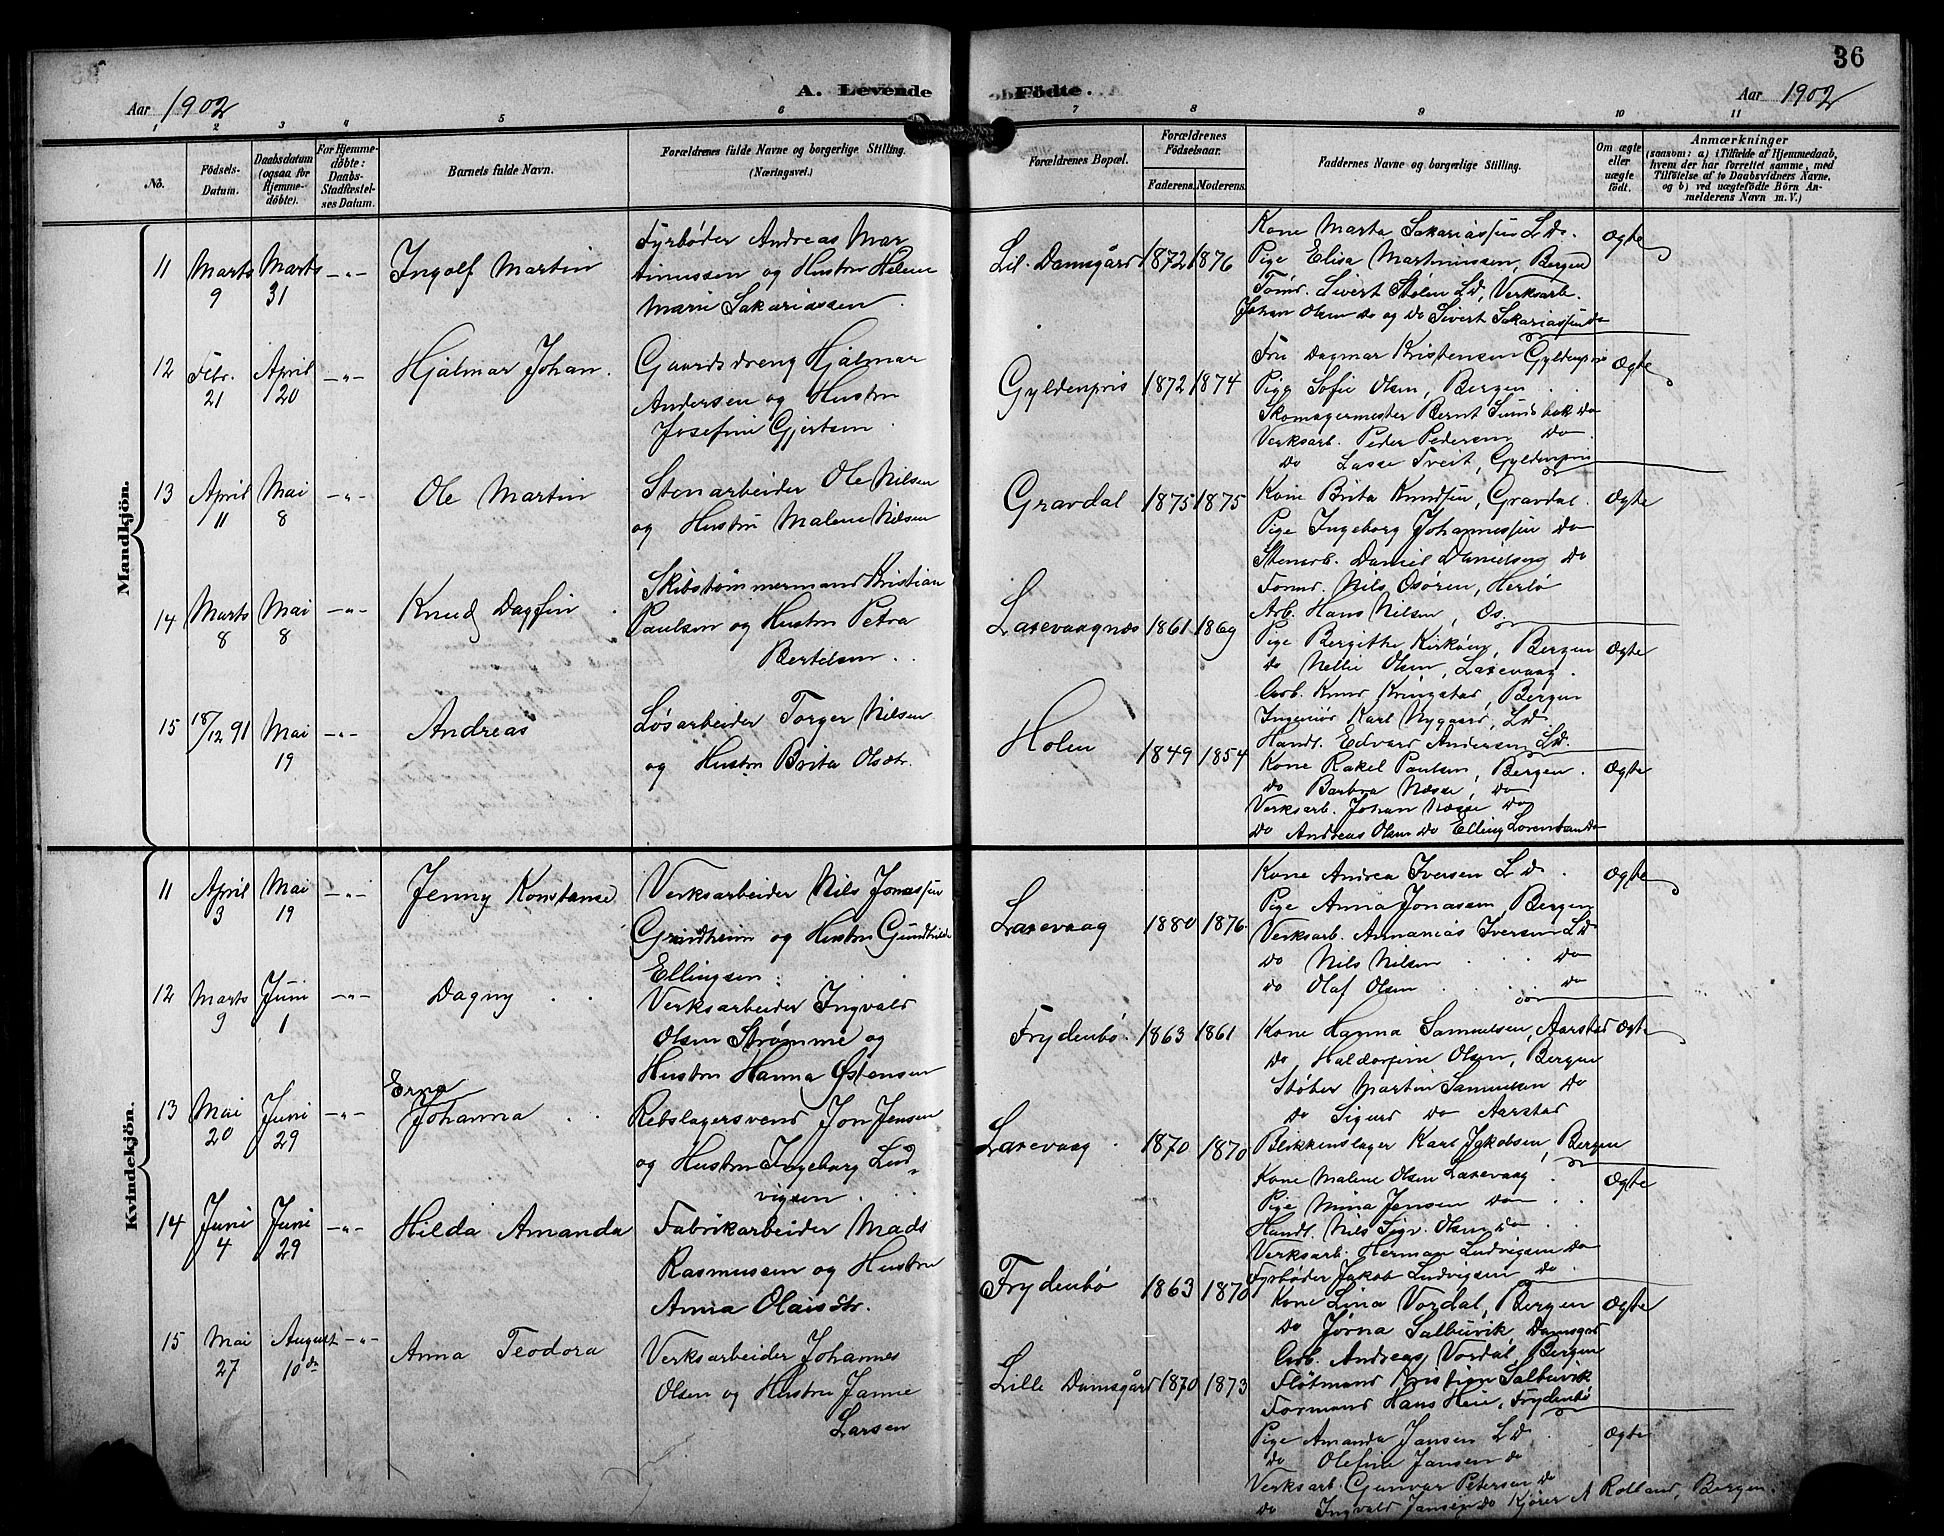 36
A. Levende Fødte.
Aar 1902
Aar 1902
1 2 3 4 5 6 7 8 9 10 11
No.
Födsels-Datum.
Daabsdatum (ogsaa for Hjemme-döbte).
For Hjemme-döbte: Daabs-Stadfæstel-ses Datum.
Barnets fulde Navn.
Forældrenes fulde Navne og borgerlige Stilling. (Næringsvei.)
Forældrenes Bopæl.
Forældrenes Födselsaar.
Faderens. Moderens.
Faddernes Navne og borgerlige Stilling.
Om ægte eller uægte födt.
Anmærkninger
(saasom: a) i Tilfælde af Hjemmedaab,
hvem der har forrettet samme, med
Tilföielse af to Daabsvidners Navne,
og b) ved uægtefödte Börn An-
melderens Navn m. V.)
Mandkjön.
11 Marts 9 Marts 31 -"- Ingolf Martin
Fyrbøder Andreas Mar
tinussen og Hustru Helene
Marie Sakariassen
Lil. Damsgård 1872 1876
Kone Marta Sakariassen Ld.
Pige Elisa Martinussen, Bergen
Tømd. Sivert Stølen Ld, Verksarb.
Johan Olsen do og do Sivert Sakariassen do
Ægte
12 Febr. 21 April 20 -"- Hjalmar Johan.
Gaardsdreng Hjalmar
Andersen og Hustru
Josefine Gjertsen
Gyldenpris 1872 1874
Fru Dagmar Kristensen Gyldenpris
Pige Sofie Olsen, Bergen
Skomagermester Bernt Sundsbak do
Verksarb. Peder Pedersen do
do Lasse Treit, Gyldenpris
Ægte
13 April 11 Mai 8 -"- Ole Martin
Stenarbeider Ole Nilsen
og Hustru Malene Nilsen
Gravdal 1875 1875
Kone Brita Knudsen, Gravdal.
Pige Ingeborg Johannessen do
Stenarb. Daniel Danielsen do
Formd. Nils Osøren, Herlø
Arb. Hans Nilsen, Os.
Ægte
14 Marts 8 Mai 8 -"- Knud Dagfin
Skibstømmermand Kristian
Paulsen og Hustru Petra
Bertelsen
Laxevaagnæs 1861 1869
Pige Bergithe Kirkøen, Bergen
do Nellie Olsen, Laxevaag.
Arb. Knud Kringstad, Bergen
Ingeniør Karl Nygaard, Ld.
Handl. Edvard Andersen Ld.
Ægte
15 18/12 91 Mai 19 -"- Andreas
Løsarbeider Torger Nilsen
og Hustru Brita Olsdtr.
Holen 1849 1854
Kone Rakel Paulsen, Bergen.
do Barbra Næsse, do
Verksarb. Johan Næsse do
do Andreas Olsen do Elling Lorentsen do
Ægte
Kvindekjön.
11 April 3 Mai 19 -"- Jenny Konstanse
Verksarbeider Nils Jonassen
Grindheim og Hustru Gundhilde
Ellingsen
Laxevaag 1880 1876
Kone Andrea Iversen Ld.
Pige Anna Jonassen, Bergen
Verksarb. Annanias Iversen Ld
do Nils Nilsen do
do Olaf Olsen do
Ægte
12 Marts 9 Juni 1 -"- Dagny
Verksarbeider Ingvald
Olsen Strømme og
Hustru Hanna Østensen
Frydenbø 1863 1861
Kone Hanna Samuelsen, Aarstad
do Haldorfine Olsen, Bergen
Støber Martin Samuelsen do
do Sigurd do Aarstad
Blikkenslager Karl Jakobsen, Bergen
Ægte
13 Mai 20 Juni 29 -"- Erna Johanna
Rebslagersvend Jon Jensen
og Hustru Ingeborg Lud
vigsen
Laxevaag 1870 1870
Kone Malene Olsen Laxevaag
Pige Mina Jensen do
Handl. Nils Sigv. Olsen do
Verksarb. Herman Ludvigsen do
Fyrbøder Jakob Ludvigsen do
Ægte
14 Juni 4 Juni 29 -"- Hilda Amanda
Fabrikarbeider Mads
Rasmussen og Hustru
Anna Olaisdtr.
Frydenbø 1863 1870
Kone Lina Vordal, Bergen
do Jørna Salbuvik, Damsgrd
Arb. Andreas Vordal, Bergen
Fløtmand Kristian Salbuvik
Formand Hans Heie, Frydenbø
Ægte
15 Mai 27 August 10de -"- Anna Teodora
Verksarbeider Johannes
Olsen og Hustru Janne
Larsen
Lille Damsgård 1870 1873
Pige Amanda Jansen Ld.
do Olefine Jansen do
Verksarb. Gunvar Petersen do
do Ingvald Jansen do Kjører A Rolland, Bergen.
Ægte